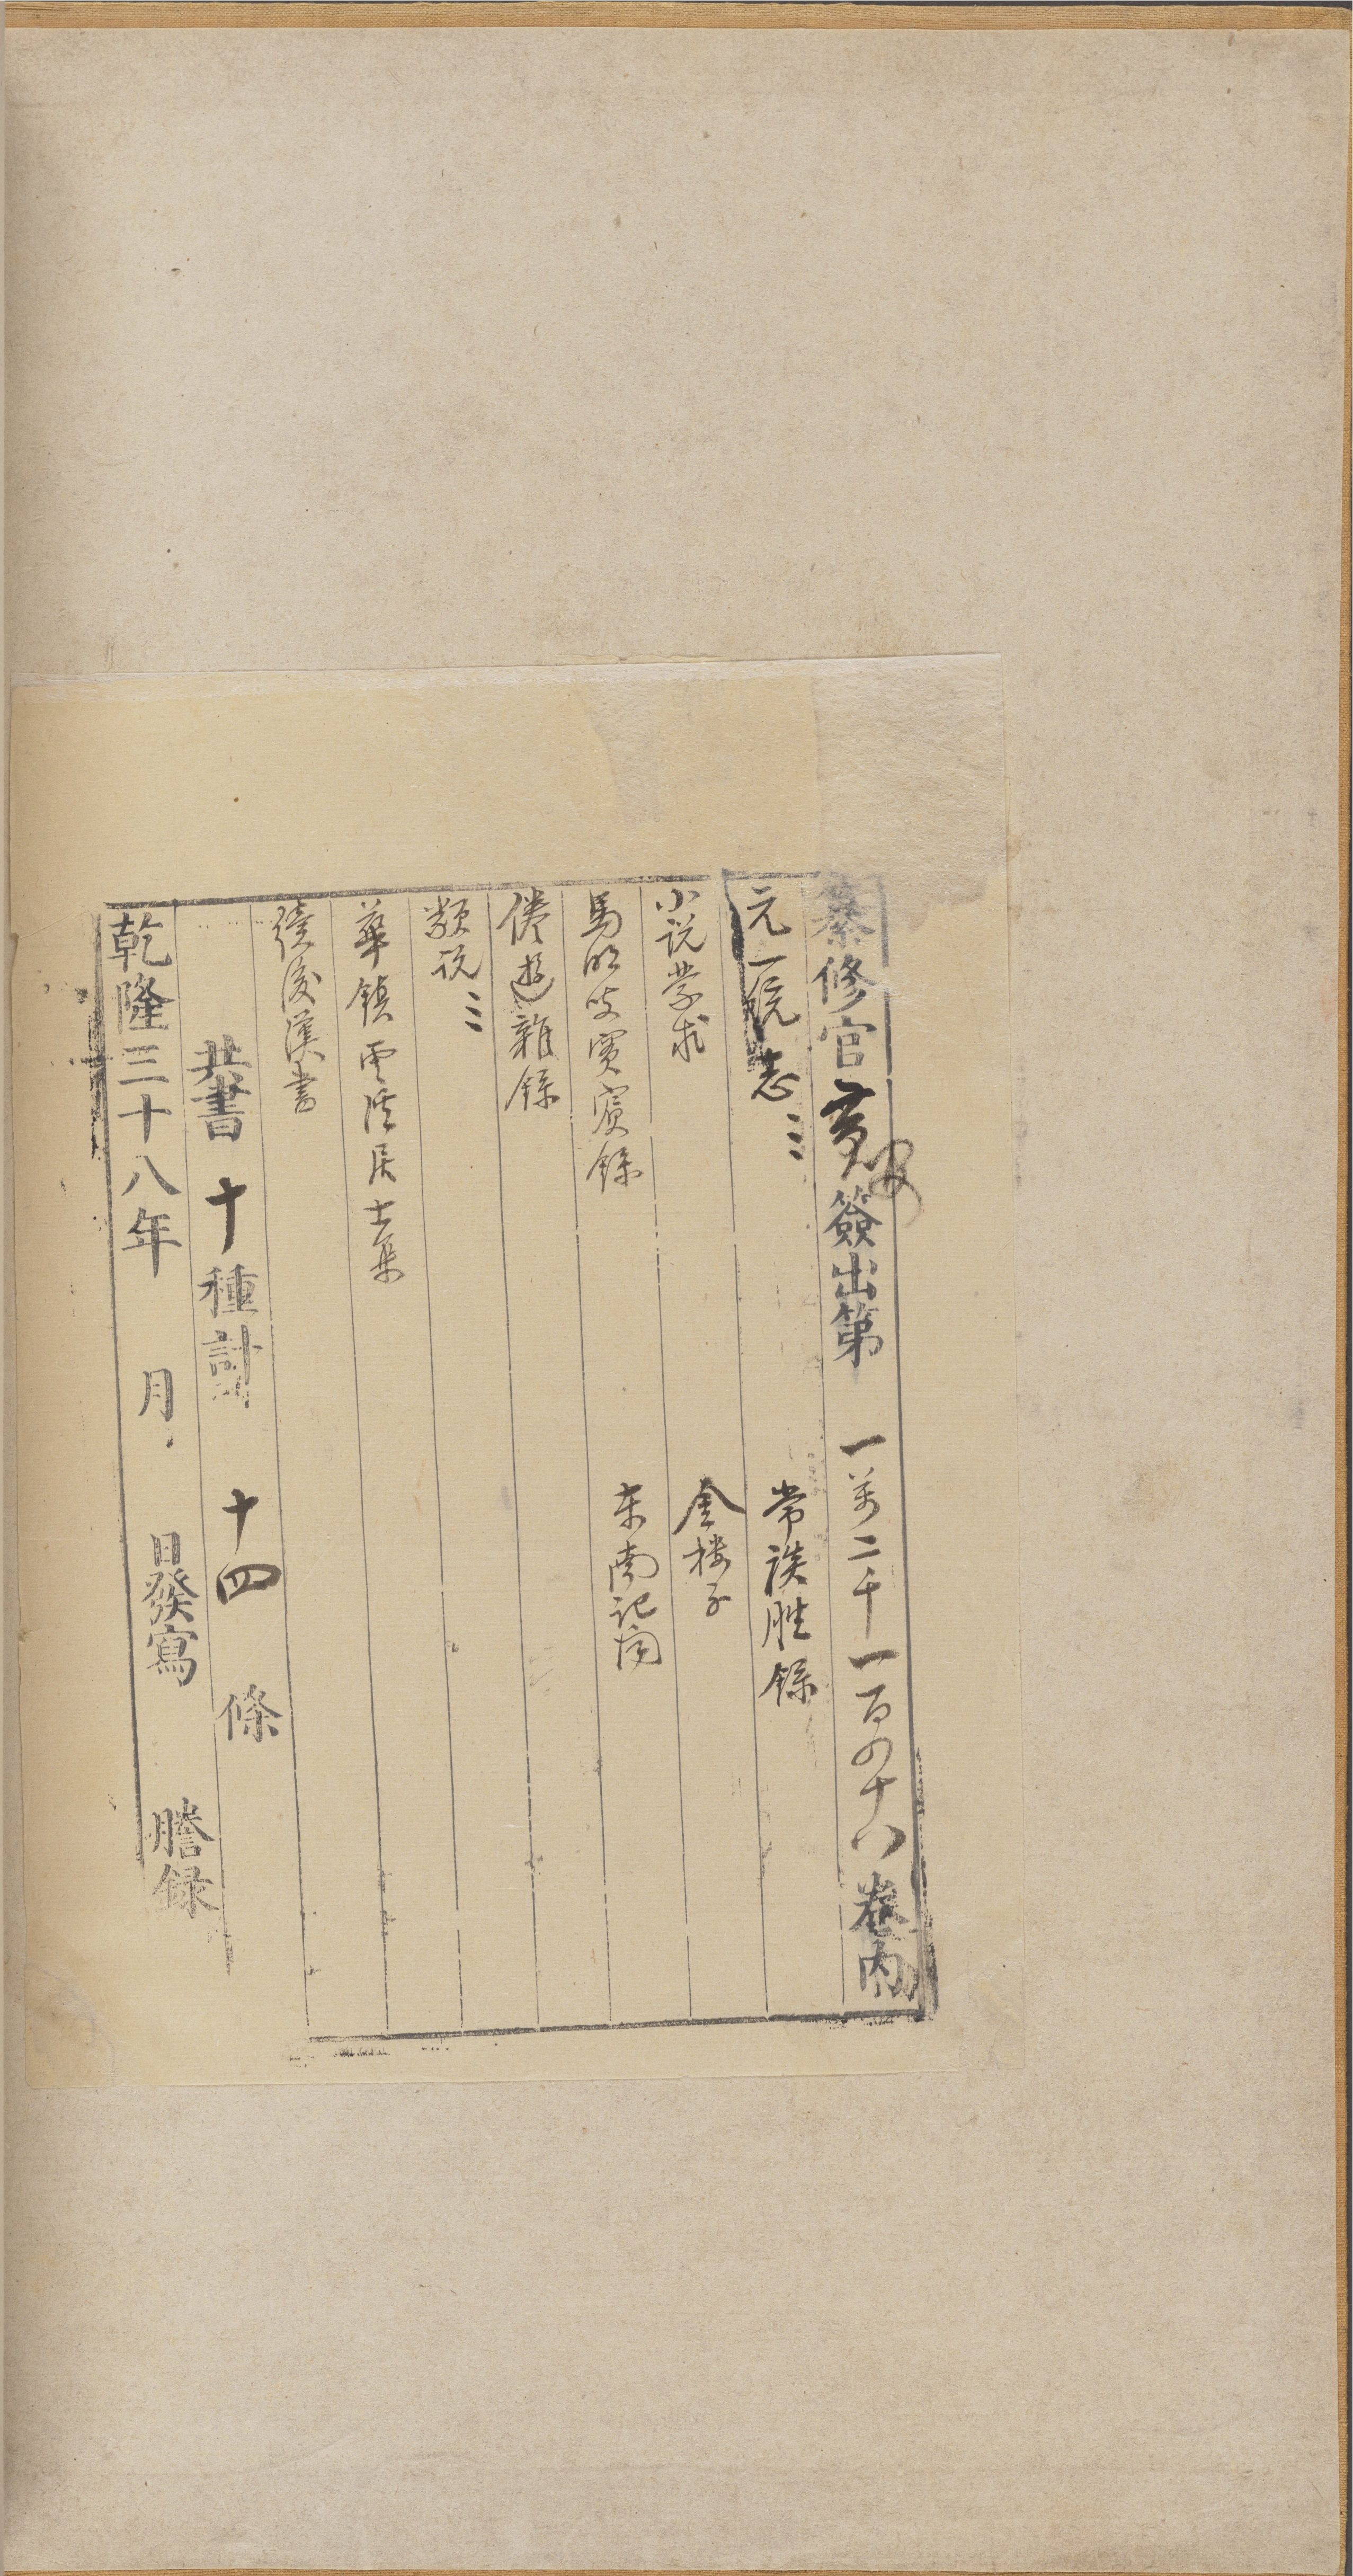 纂修官黄簽出第一萬二千一百四十八卷内
元一統志三
常談
小説蒙求
金樓子
馬明叟實賓錄
東南記聞
倦遊雜錄
類説三
華鎮雲溪居士集
續後漢書
共書十種計十四條
乾隆三十八年 月 日發寫 謄録